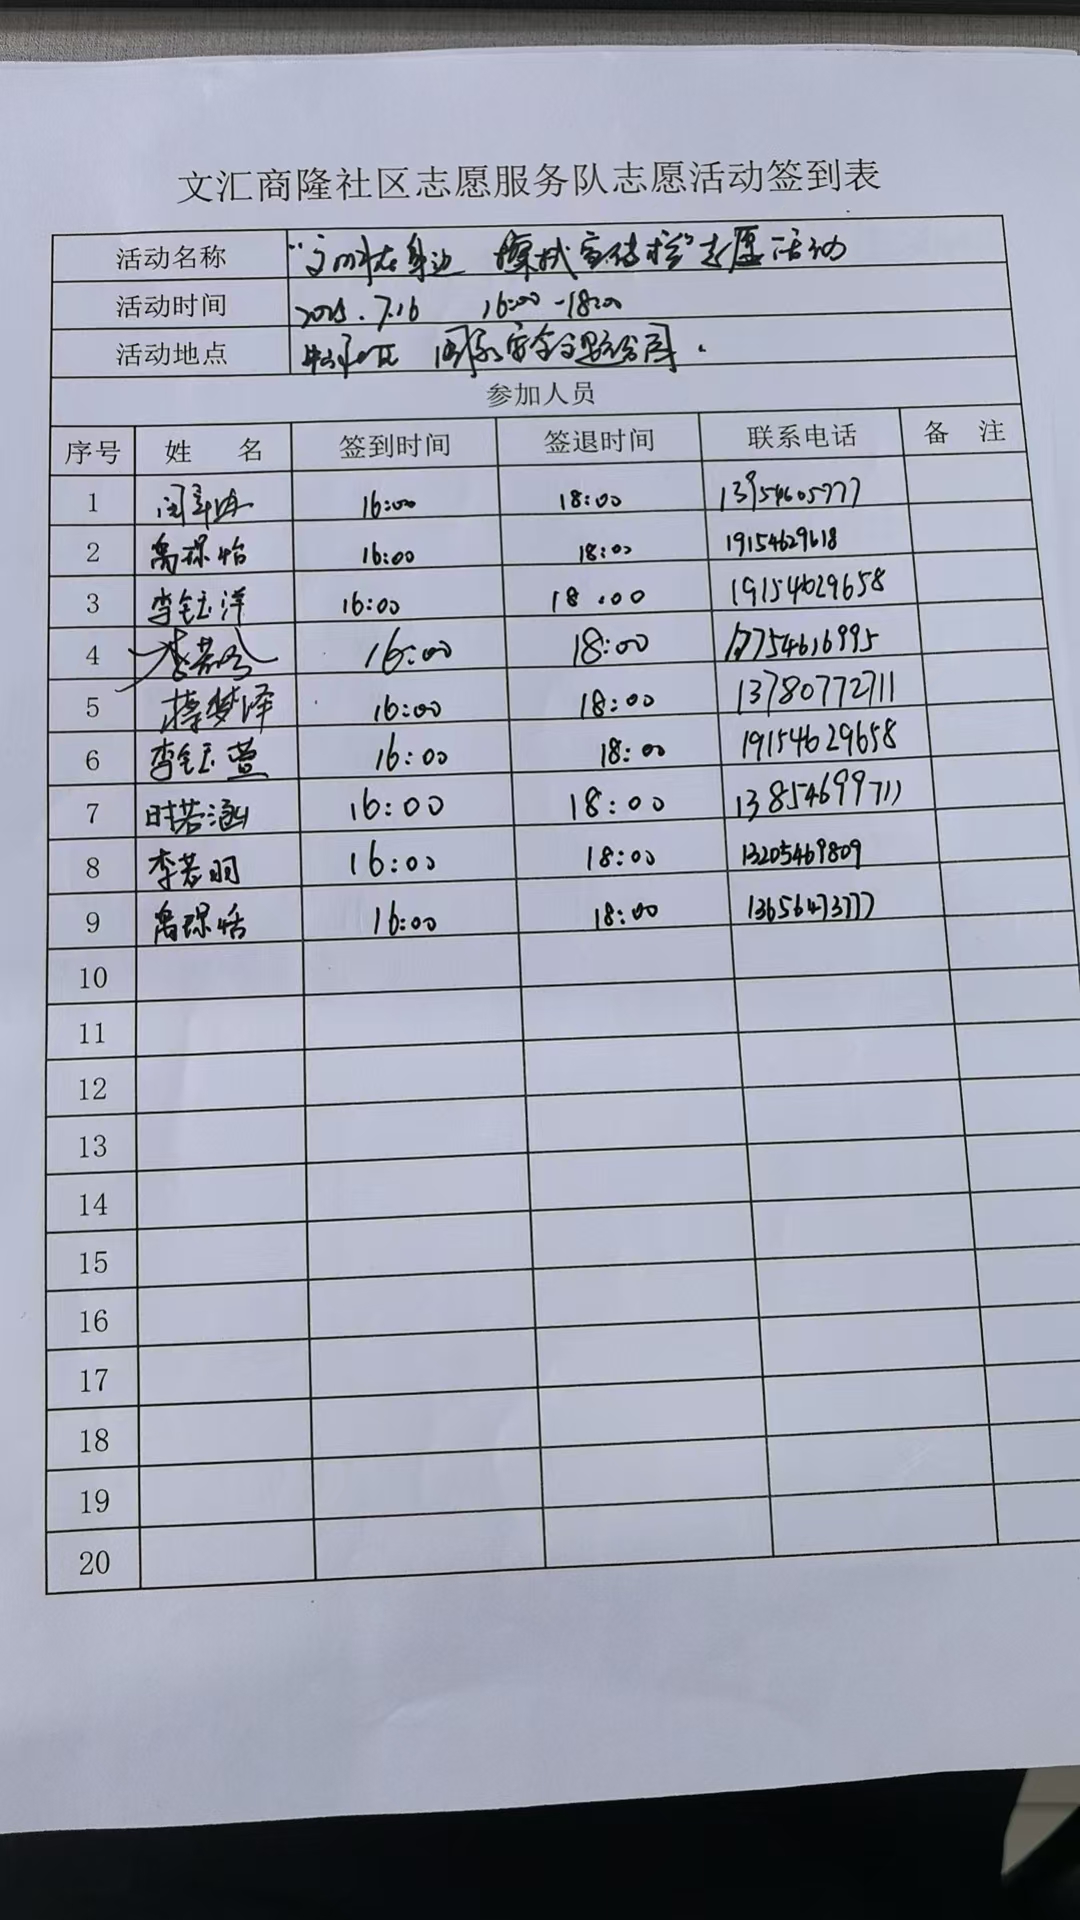 文汇商隆社区志愿服务队志愿活动签到表
活动名称 “文明在身边 擦拭宣传栏”志愿活动
活动时间 2025.7.16 16:00-18:00
活动地点
参加人员
序号 姓 名 签到时间 签退时间 联系电话 备 注
1 16:00 18:00 13954605777
2 16:00 18:00 19154629618
3 李钰洋 16:00 18:00 19154629658
4 16:00 18:00 17754616995
5 梦泽 16:00 18:00 13780772711
6 李钰萱 16:00 18:00 19154629658
7 时若涵 16:00 18:00 13854699711
8 李若羽 16:00 18:00 13205469809
9 16:00 18:00 13656473777
10
11
12
13
14
15
16
17
18
19
20